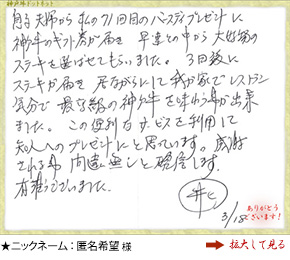 神戸牛ドットネット
息子夫婦から私の71回目のバースディプレゼントに
神戸牛のギフト券が届き 早速その中から大好物の
ステーキを選ばせてもらいました。 3日後に
ステーキが届き 居ながらにして我が家でレストラン
気分で 最高級の神戸牛を味わう事が出来
ました。 この便利なサービスを利用して
知人へのプレゼントにと思っています。感謝
される事 間違い無しと確信します。
有難うございました。
3/18
ありがとう
ございます!
★ニックネーム:匿名希望 様
拡大して見る